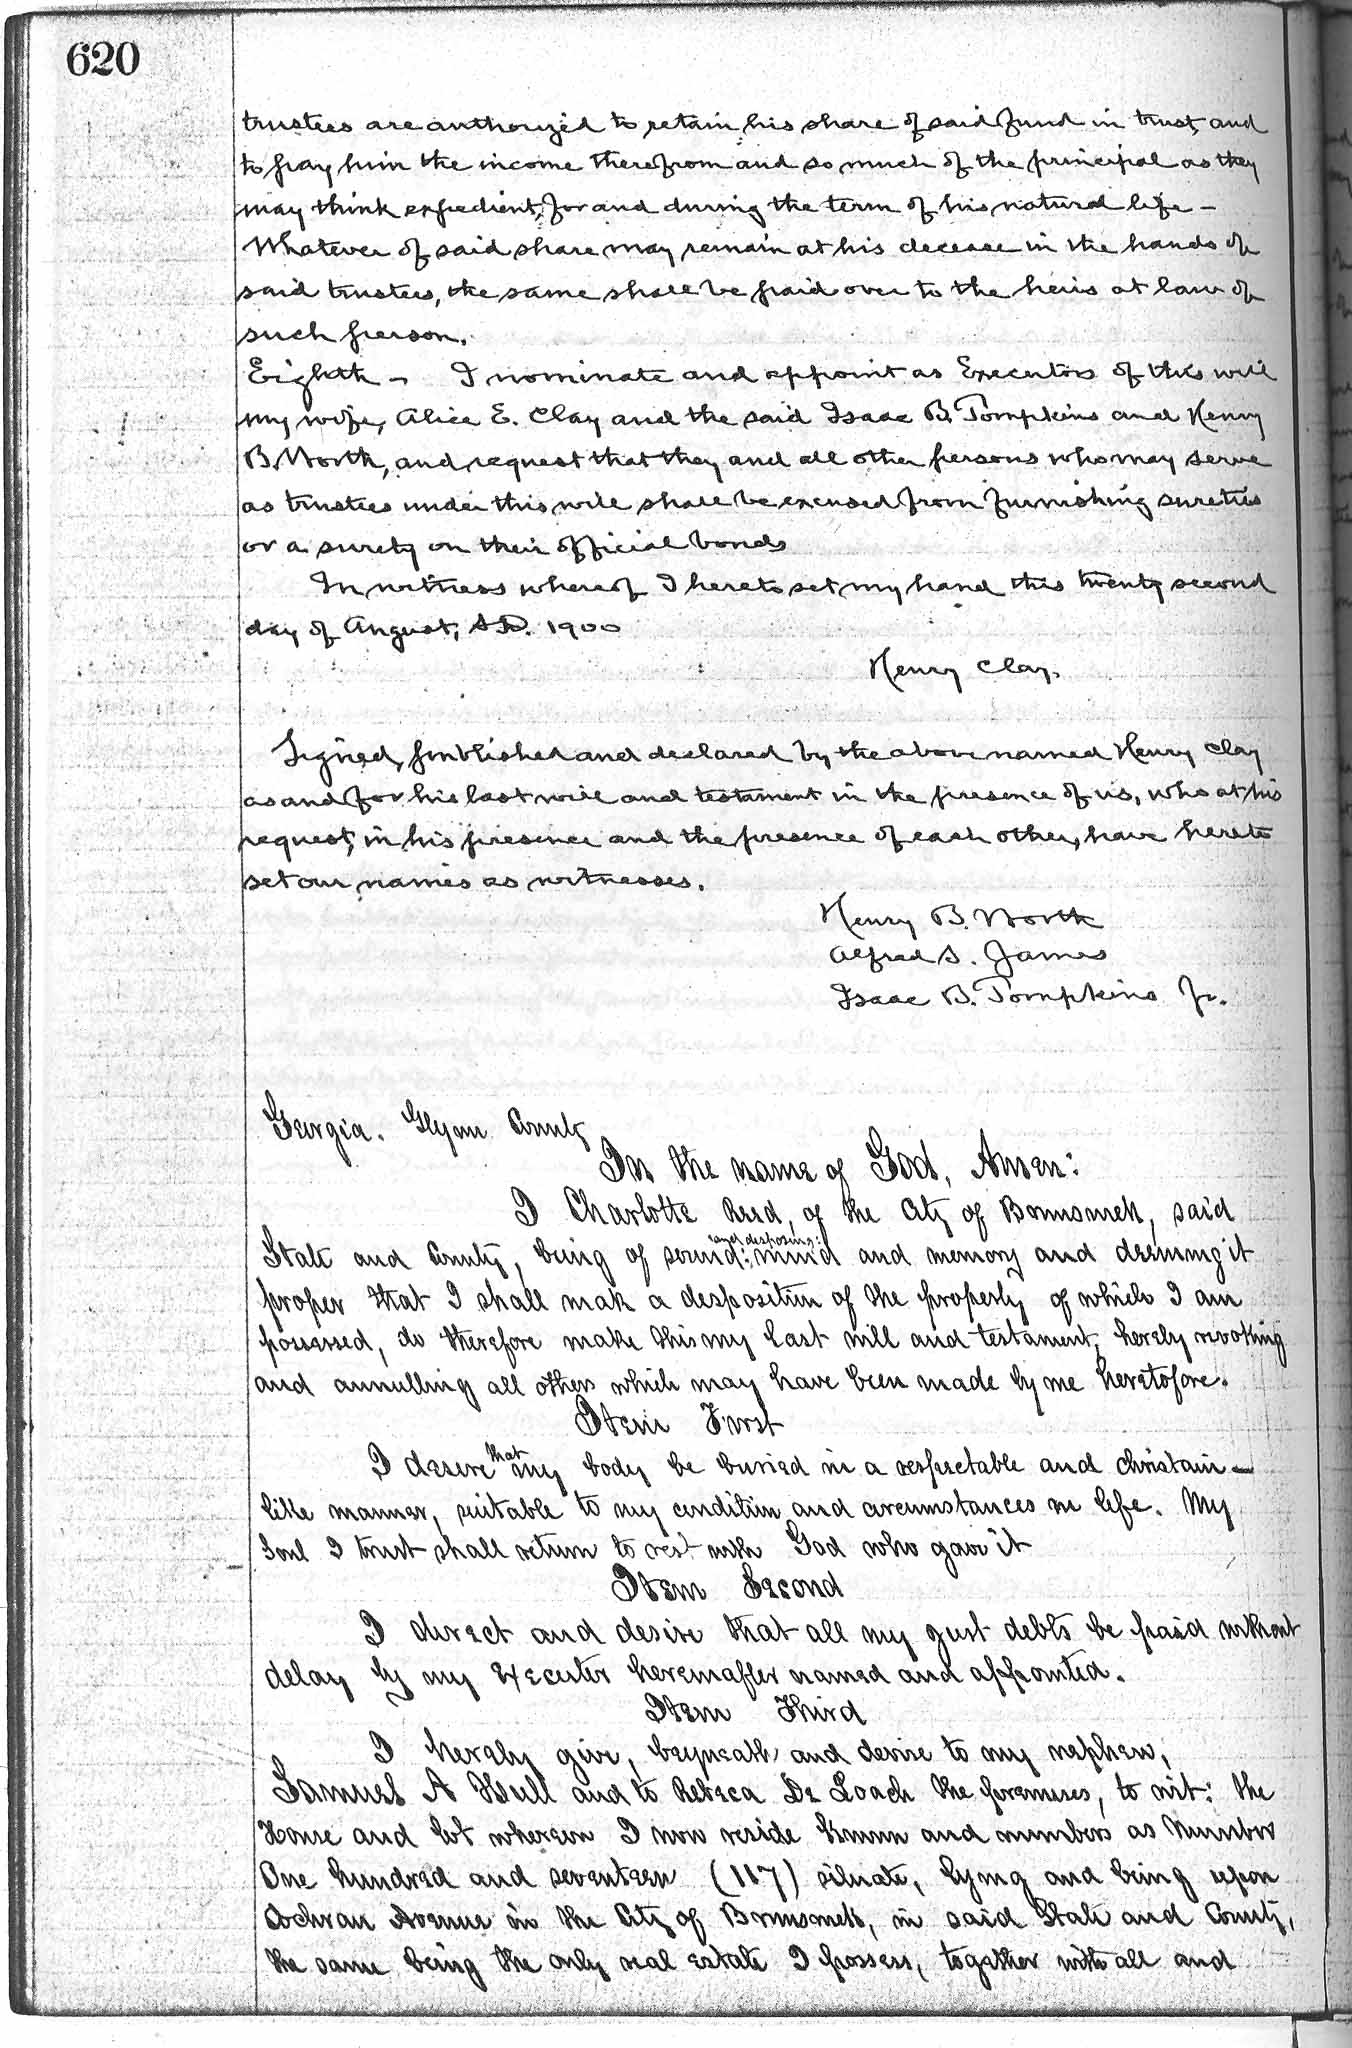 620
trustees are authorized to retain his share of said fund in trust and
to pay him the income therefrom and so much of the principal as they
may think expedient, for and during the term of his natural life –
Whatever of said share may remain at his decease in the hands of
said trustees, the same shall be paid over to the heirs at law of
such person.
Eighth – I nominate and appoint as Executors of this will
my wife, Alice E. Clay and the said Isaac B. Tompkins and Henry
B. North, and request that they and all other persons who may serve
as trustees under this will shall be excused from furnishing sureties
or a surety on their official bonds
In witness whereof I hereto set my hand this twenty second
day of August, A.D. 1900
Henry Clay.
Signed, published and declared by the above named Henry Clay
as and for his last will and testament in the presence of us, who at his
request, in his presence and the presence of each other, have hereto
set our names as witnesses.
Henry B. North
Alfred S. James
Isaac B. Tompkins Jr.
Georgia. Glynn County
In the name of God, Amen:
I Charlotte Reed, of the City of Brunswick, said
State and County, being of sound: and disposing: mind and memory and deeming it
proper that I shall mak a desposition of the property of which I am
possessed, do therefore make this my last will and testament, hereby revoking
and annulling all others which may have been made by me heretofore.
Item First
I desire that my body be buried in a respectable and christain –
like manner, suitable to my condition and circumstances in life. My
Soul I trust shall return to rest with God who gave it
Item Second
I direct and desire that all my just debts be paid without
delay by my Executer hereinafter named and appointed.
Item Third
I hereby give, bequeath and devise to my nephew,
Samuel A Hull and to Rebeca De Loach the premises, to wit: the
House and lot whereon I now reside known and numbers as Number
One hundred and seventeen (117) situate, lying and being upon
Cochran Avenue in the City of Brunswick, in said State and County,
the same being the only real estate I possess, together with all and